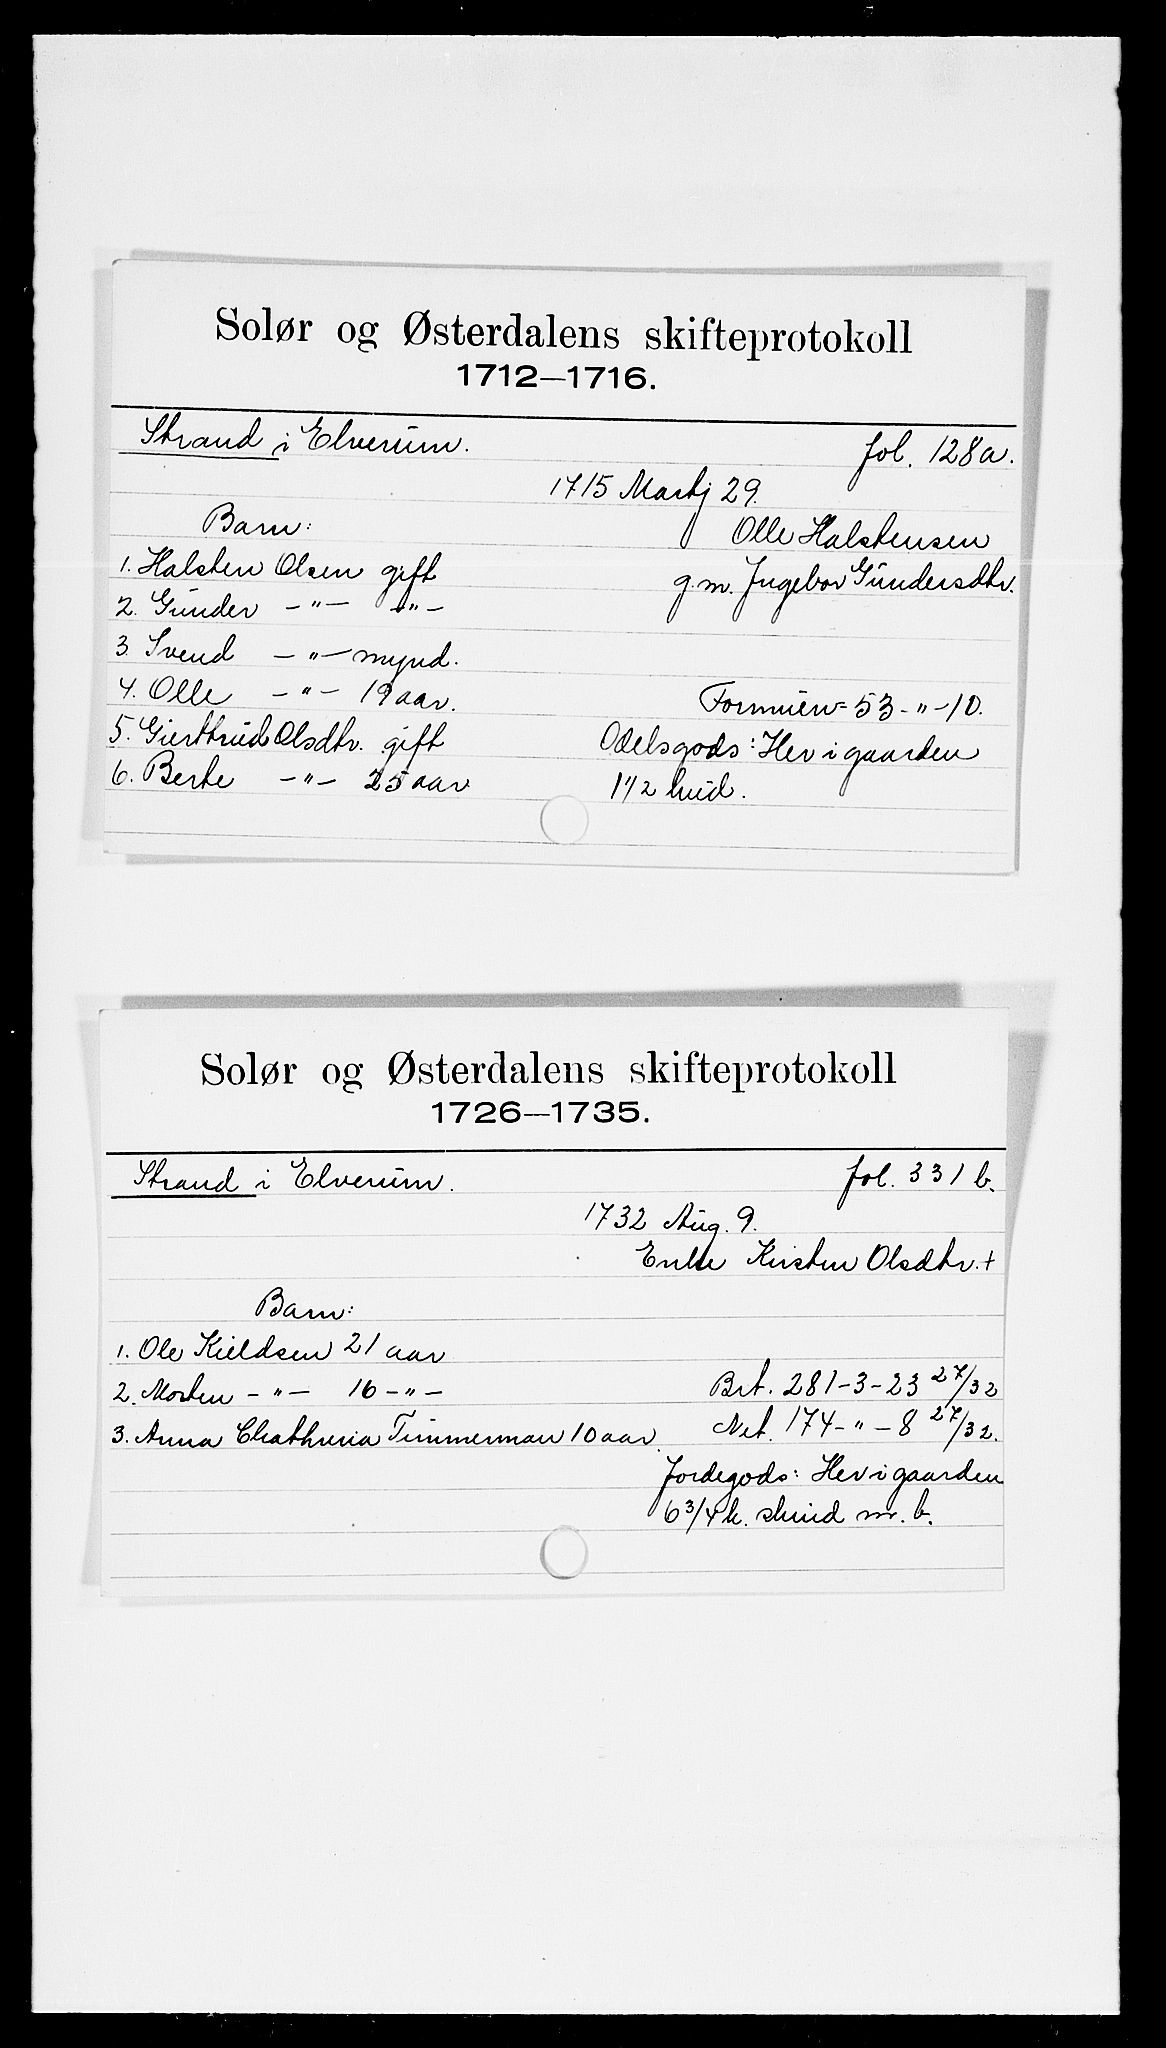 Solør og Østerdalens skifteprotokoll
1712—1716.
Strand i Elverum. fol. 128a.
1715 Martj 29.
Barn: Olle Halstensen
1. Halsten Olsen gift g.m. Ingebor Gündersdtr.
2. Günder —"— —"—
3. Svend —"— mynd.
4. Olle —"— 19 aar. Formüen = 53-"-10.
5. Gierttrüd Olsdtr. gift Odelsgods: Her i gaarden
6. Berte —"— 25 aar 1 1/2 hüd.
Solør og Østerdalens skifteprotokoll
1726—1735.
Strand i Elverum. fol. 331 b.
1732 Aug. 9.
Enke Kirsten Olsdtr. +
Barn:
1. Ole Kieldsen 21 aar
2. Morten —"— 16 —"— Brt. 281-3-23 27/32
3. Anna Chathrina Timmerman 10 aar. Net. 174-"-8 27/32.
Jordegods: Her i gaarden
6 3/4 k. skind m. b.